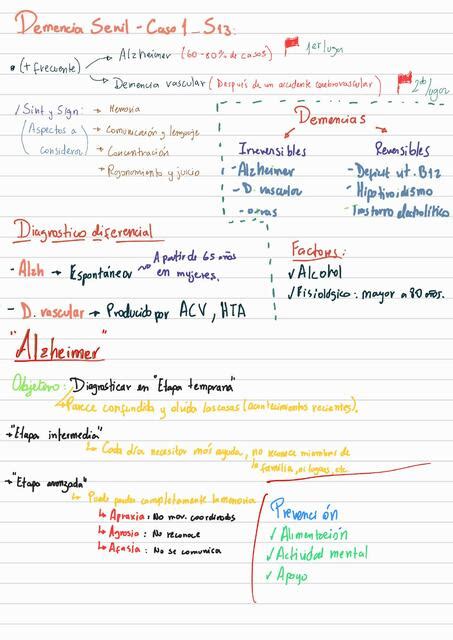 Demencia Senil - Caso 1_S13:
• (+ frecuente)
Alzheimer (60-80% de casos) 1er lugar
Demencia vascular (Después de un accidente cerebrovascular) 2do lugar
/Sint y Sign:
(Aspectos a considerar)
→ Memoria
→ Comunicación y lenguaje
→ Concentración
→ Razonamiento y juicio
Demencias
Irreversibles
- Alzheimer
- D. vascular
- otras
Reversibles
- Deficit vit. B12
- Hipotiroidismo
- Trastorno electrolítico
Diagnostico diferencial
- Alzh → Espontánea
A partir de 65 años
en mujeres.
- D. vascular → Producido por ACV, HTA
Factores:
✓ Alcohol
✓ Fisiológico: mayor a 80 años.
"Alzheimer"
Objetivo: Diagnosticar en "Etapa temprana"
↳ Parece confundida y olvida las cosas (acontecimientos recientes).
→ "Etapa intermedia"
↳ Cada día necesitar más ayuda, no reconoce miembros de
la familia, ni lugares, etc
→ "Etapa avanzada"
↳ Puede perder completamente la memoria
↳ Apraxia: No mov. coordinados
↳ Agnosia: No reconoce
↳ Afasia: No se comunica
Prevención
✓ Alimentación
✓ Actividad mental
✓ Apoyo